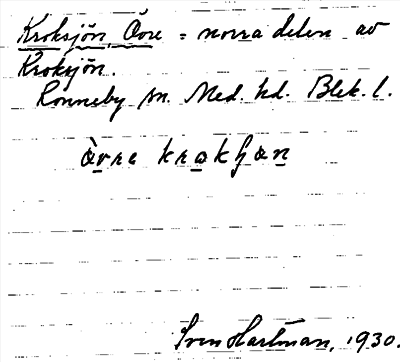 Kroksjön, Övre = norra delen av
Kroksjön.
Ronneby sn. Med. hd. Blek. l.
Sven Hartman, 1930.